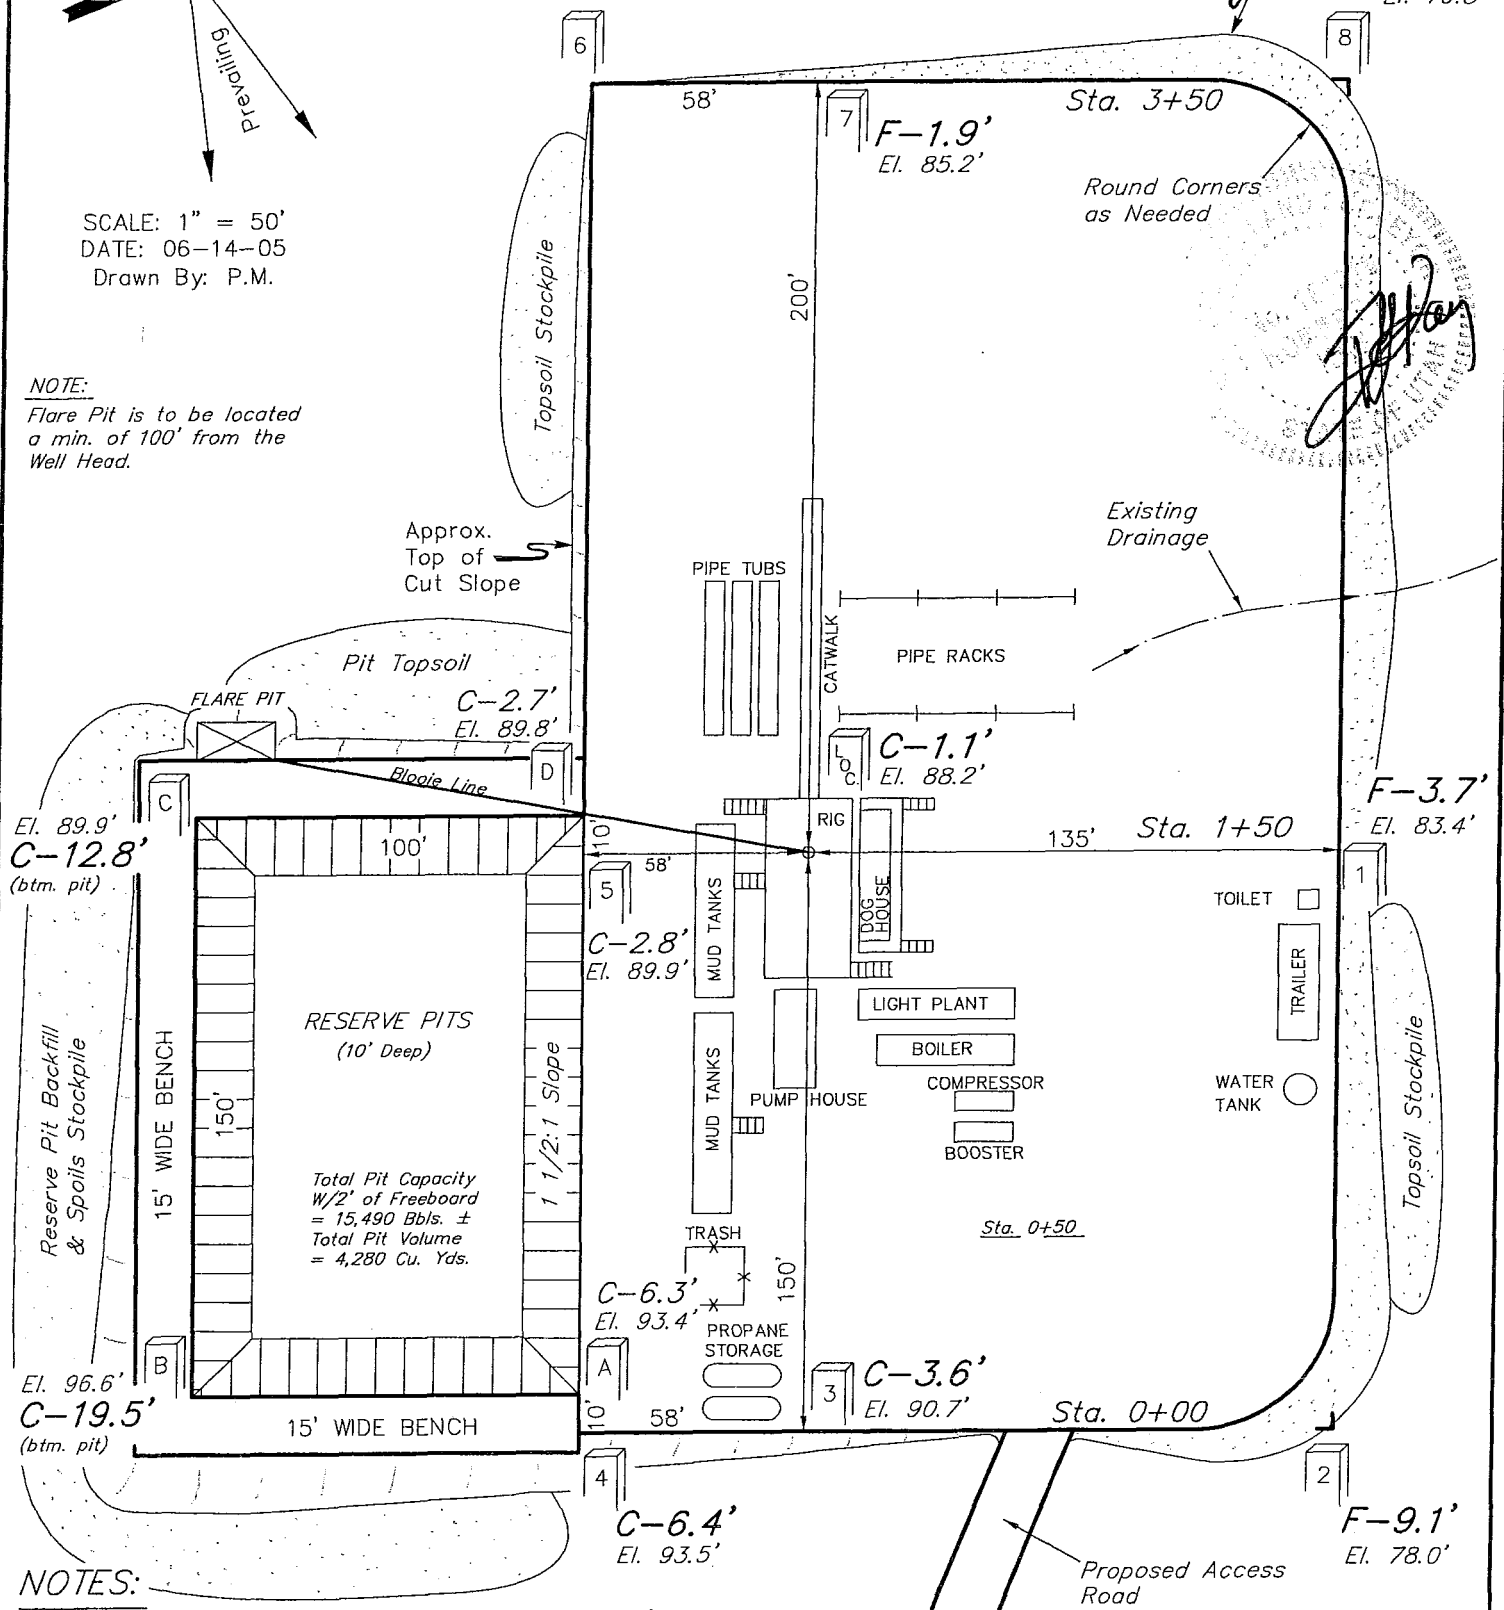 El.
6
8
Prevailing
58'
7
F-1.9'
El. 85.2'
Sta. 3+50
Round Corners
as Needed
SCALE: 1" = 50'
DATE: 06-14-05
Drawn By: P.M.
Topsoil Stockpile
200'
STATE OF UTAH
NOTE:
Flare Pit is to be located
a min. of 100' from the
Well Head.
Approx.
Top of
Cut Slope
Existing
Drainage
PIPE TUBS
CATWALK
PIPE RACKS
Pit Topsoil
FLARE PIT
C-2.7'
El. 89.8'
D
C
Blooie Line
LOC.
C-1.1'
El. 88.2'
F-3.7'
El. 83.4'
1
El. 89.9'
C-12.8'
(btm. pit)
100'
10'
58'
RIG
135'
Sta. 1+50
5
C-2.8'
El. 89.9'
MUD TANKS
DOG
HOUSE
TOILET
TRAILER
LIGHT PLANT
BOILER
COMPRESSOR
BOOSTER
PUMP HOUSE
MUD TANKS
WATER
TANK
Topsoil Stockpile
Reserve Pit Backfill
& Spoils Stockpile
15' WIDE BENCH
150'
RESERVE PITS
(10' Deep)
1 1/2:1 Slope
Total Pit Capacity
W/2' of Freeboard
= 15,490 Bbls. ±
Total Pit Volume
= 4,280 Cu. Yds.
TRASH
Sta. 0+50
150'
C-6.3'
El. 93.4'
PROPANE
STORAGE
A
B
El. 96.6'
C-19.5'
(btm. pit)
15' WIDE BENCH
10'
58'
3
C-3.6'
El. 90.7'
Sta. 0+00
4
C-6.4'
El. 93.5'
2
F-9.1'
El. 78.0'
Proposed Access
Road
NOTES: